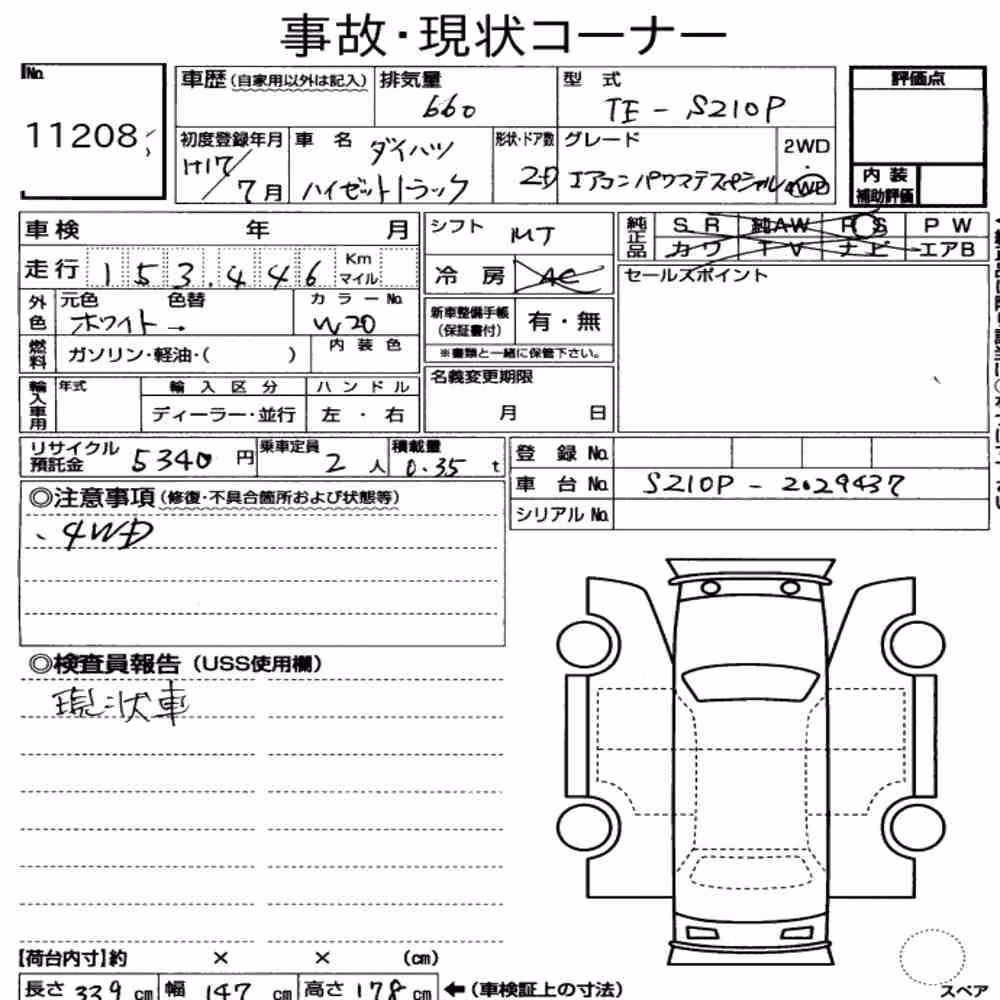 事故・現状コーナー
No. 11208
車歴(自家用以外は記入) 排気量 660 型式 TE-S210P 評価点
初度登録年月 H17/7月 車名 ダイハツ ハイゼットトラック 形状・ドア数 2D グレード エアコンパワステスペシャル 2WD 4WD
内装 補助評価
車検 年 月 シフト MT 純正品 SR 純AW PS PW
カワ TV ナビ エアB
走行 153,446 Km マイル 冷房 AC セールスポイント
外色 元色 ホワイト → 色替 カラーNo. W20 新車整備手帳(保証書付) 有・無
燃料 ガソリン・軽油・( ) 内装色 ※書類と一緒に保管下さい。
輸入車用 年式 輸入区分 ハンドル 名義変更期限
ディーラー・並行 左・右 月 日
リサイクル預託金 5340円 乗車定員 2人 積載量 0.35t 登録No.
車台No. S210P-2029437
シリアルNo.
◎注意事項(修復・不具合箇所および状態等)
、4WD
◎検査員報告(USS使用欄)
現状車
【荷台内寸】約 × × (cm)
長さ 339 cm 幅 147 cm 高さ 178 cm ←(車検証上の寸法)
スペア